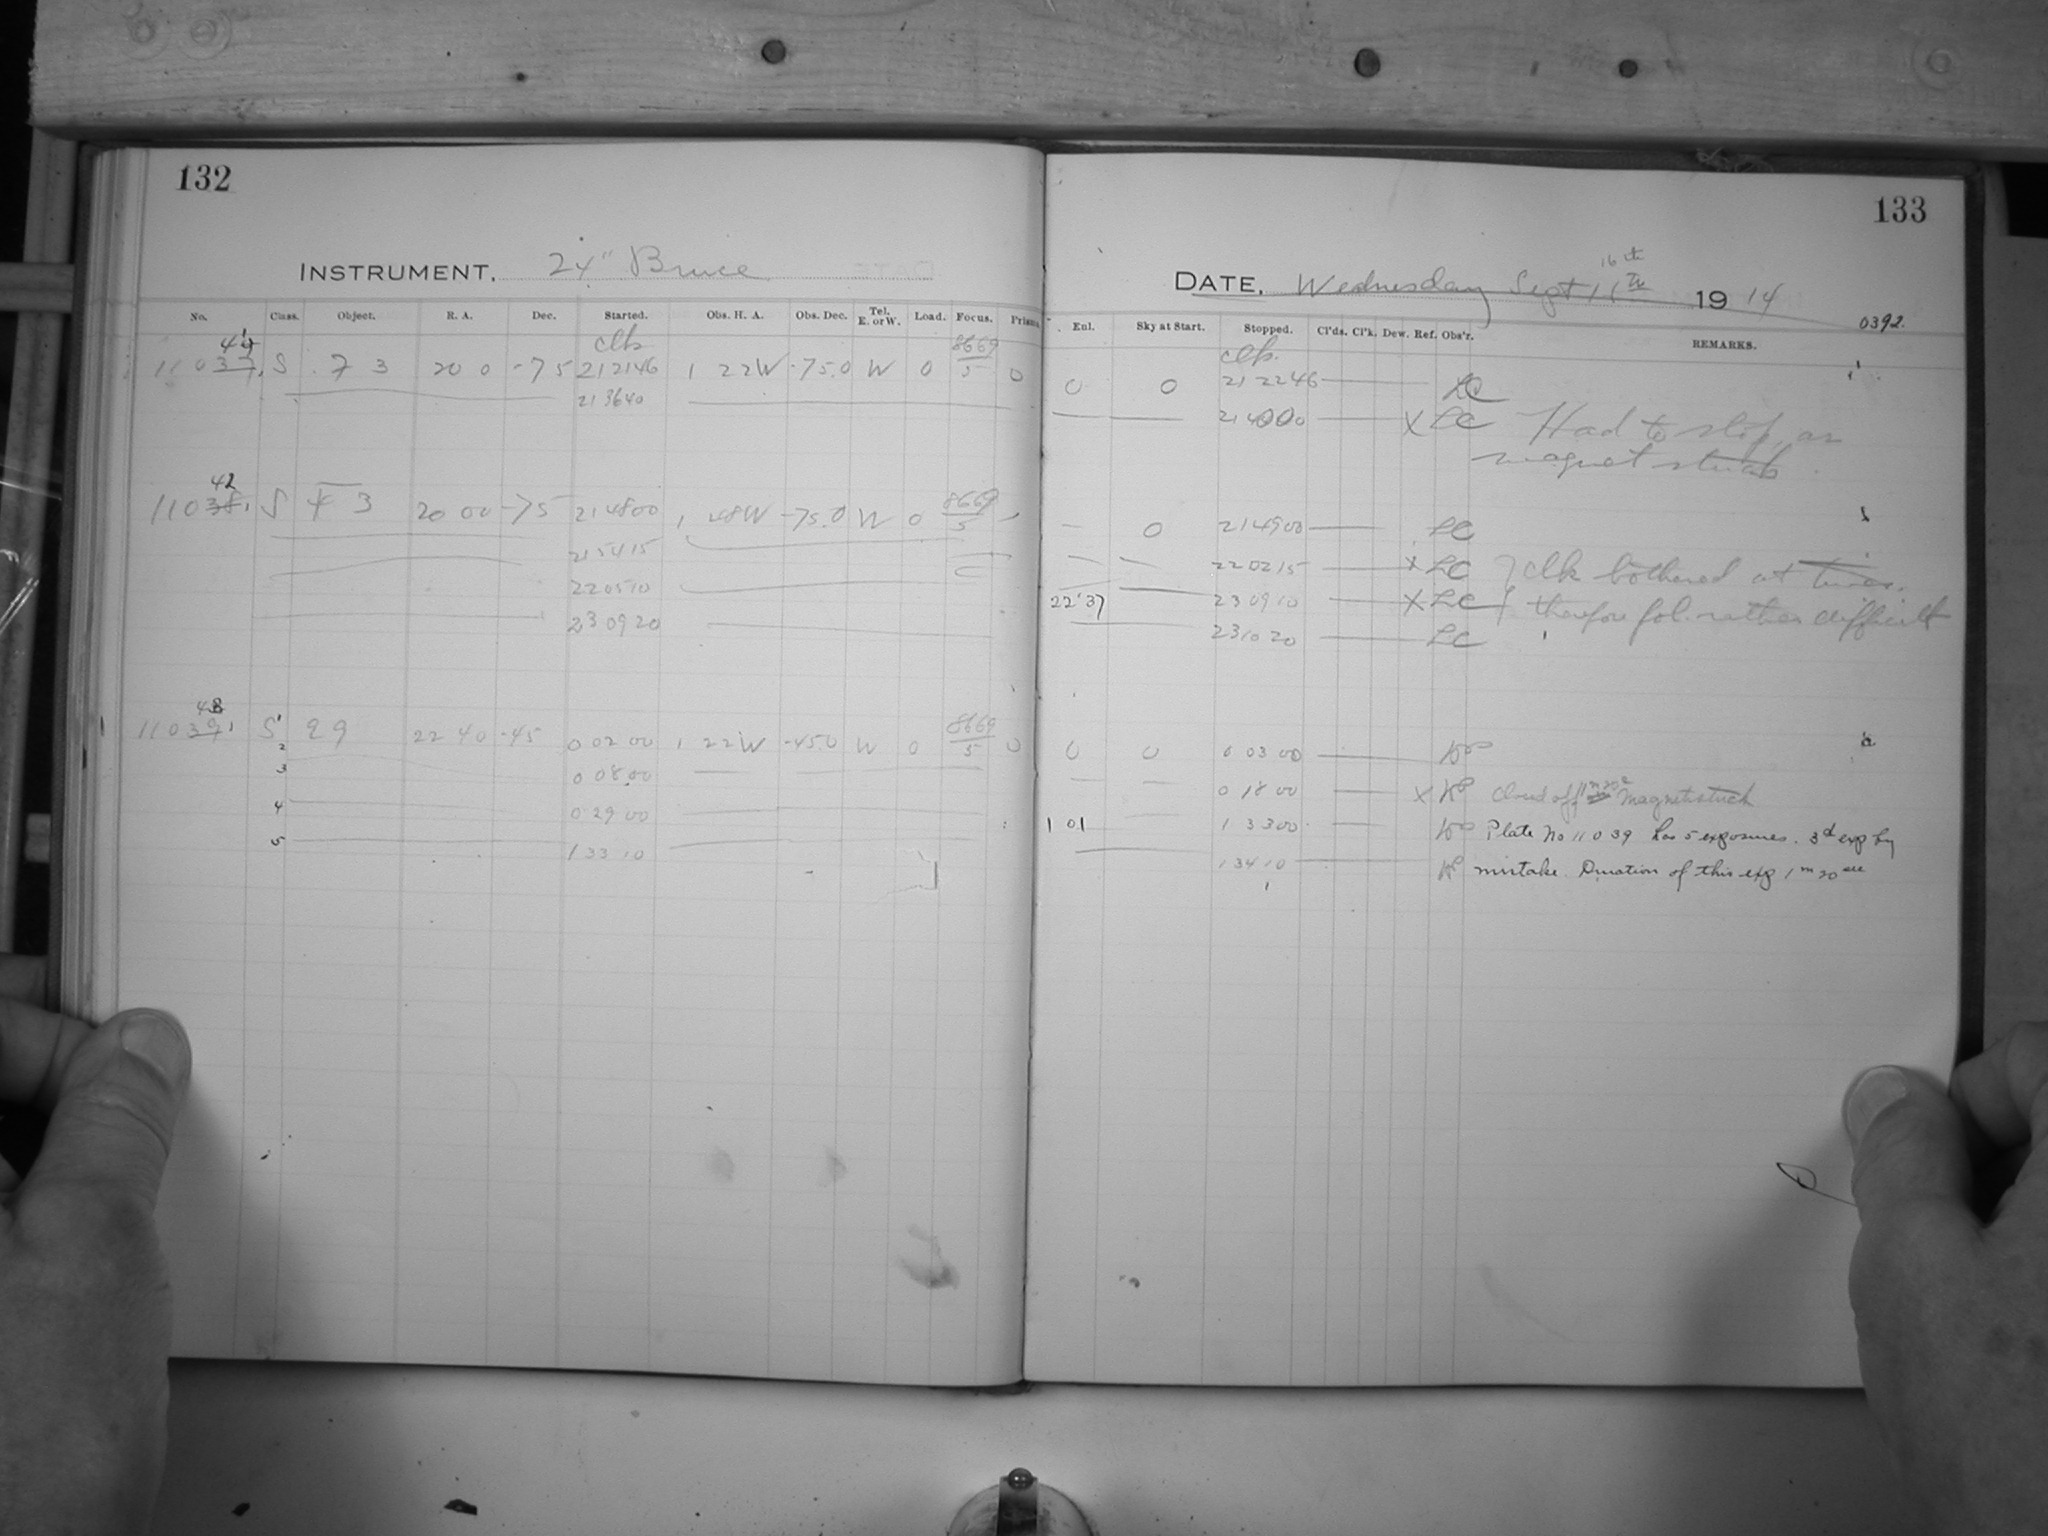 132
133
INSTRUMENT. 24" Bruce
DATE. Wednesday Sept 16th 1914
0392.
No. Class. Object. R. A. Dec. Started. Obs. H. A. Obs. Dec. Tel. E. or W. Load. Focus. Prisms
Exl. Sky at Start. Stopped. Cl'ds. Cl'k. Dew. Ref. Obs'r. REMARKS.
clk clk.
11037 S 73 20 0 -75 212146 1 22W -75.0 W 0 8669/5 0 0 0 212246 LC
213640 214000 X LC Had to stop, as
magnet stuck.
42
11038 S 43 20 00 -75 214800 1 48W -75.0 W 0 8669/5 - 0 214900 LC
215415 220215 X LC clk bothered at times.
220510 22 37 230910 X LC therefore fol. rather difficult
230920 231020 LC
43
11039 S 1 99 22 40 -45 0 02 00 1 22W -45.0 W 0 8669/5 0 0 0 0 03 00
2
3 0 08 00 0 18 00 X Cloud off 1m 20s Magnet stuck
4 0 29 00 1 01 1 33 00 Plate No 11039 has 5 exposures. 3d exp by
5 1 33 10 1 34 10 mistake. Duration of this exp 1 m 20 sec